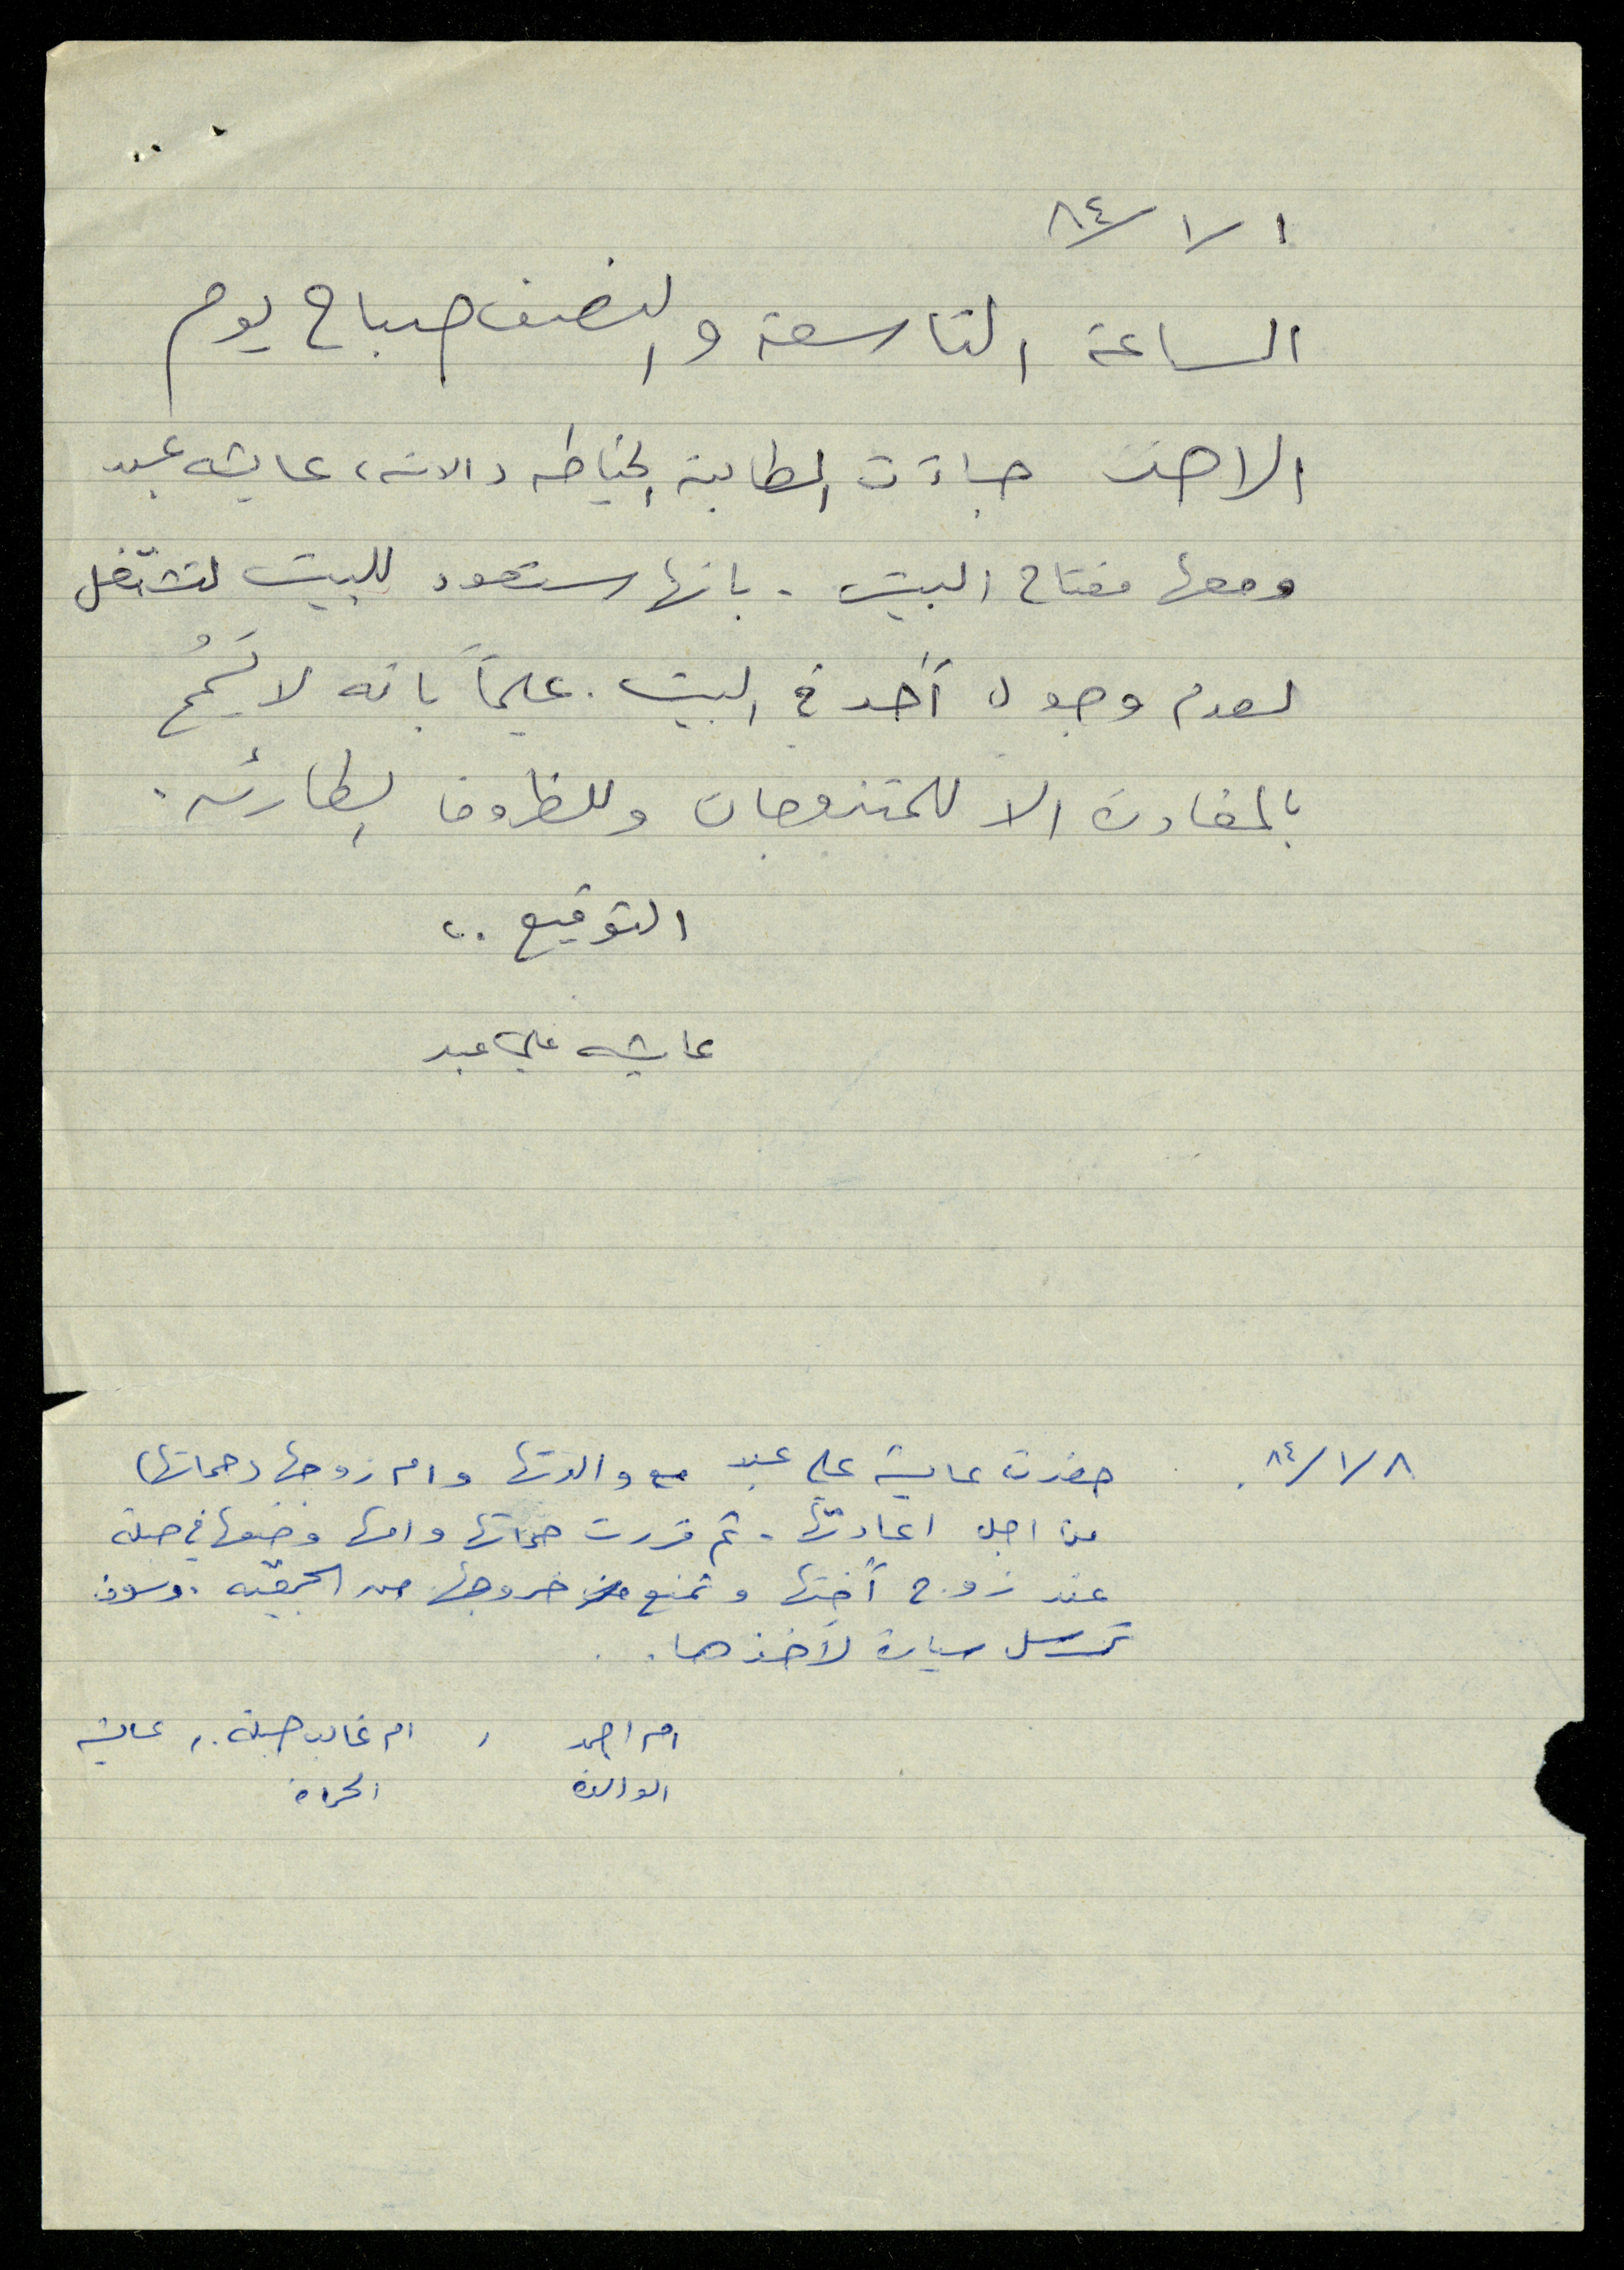 ١/١/٨٤
الساعة التاسعة والنصف صباح يوم
الاحد جاءت الطالبة الخياطه عايشه عبد
ومعها مفتاح البيت . بانها ستعود للبيت لتشتغل
لعدم وجود أحد في البيت . علماً بانه لا يَسمُح
بالمغادرة الا للمتزوجات وللظروف الطارئه .
التوقيع ..
عايشه علي عبد
٨/١/٨٤ . حضرت عايشة علي عبد مع والدتها وام زوجها (حماتها)
من اجل اعادتها . ثم قررت حماتها وامها وضعها في صبلة
عند زوج أختها وتمنع من خروجها من الجمعيه . وسوف
ترسل سيارة لأخذها . .
ام احمد , ام غالب صبلة . , عايشه
الوالده الحماة